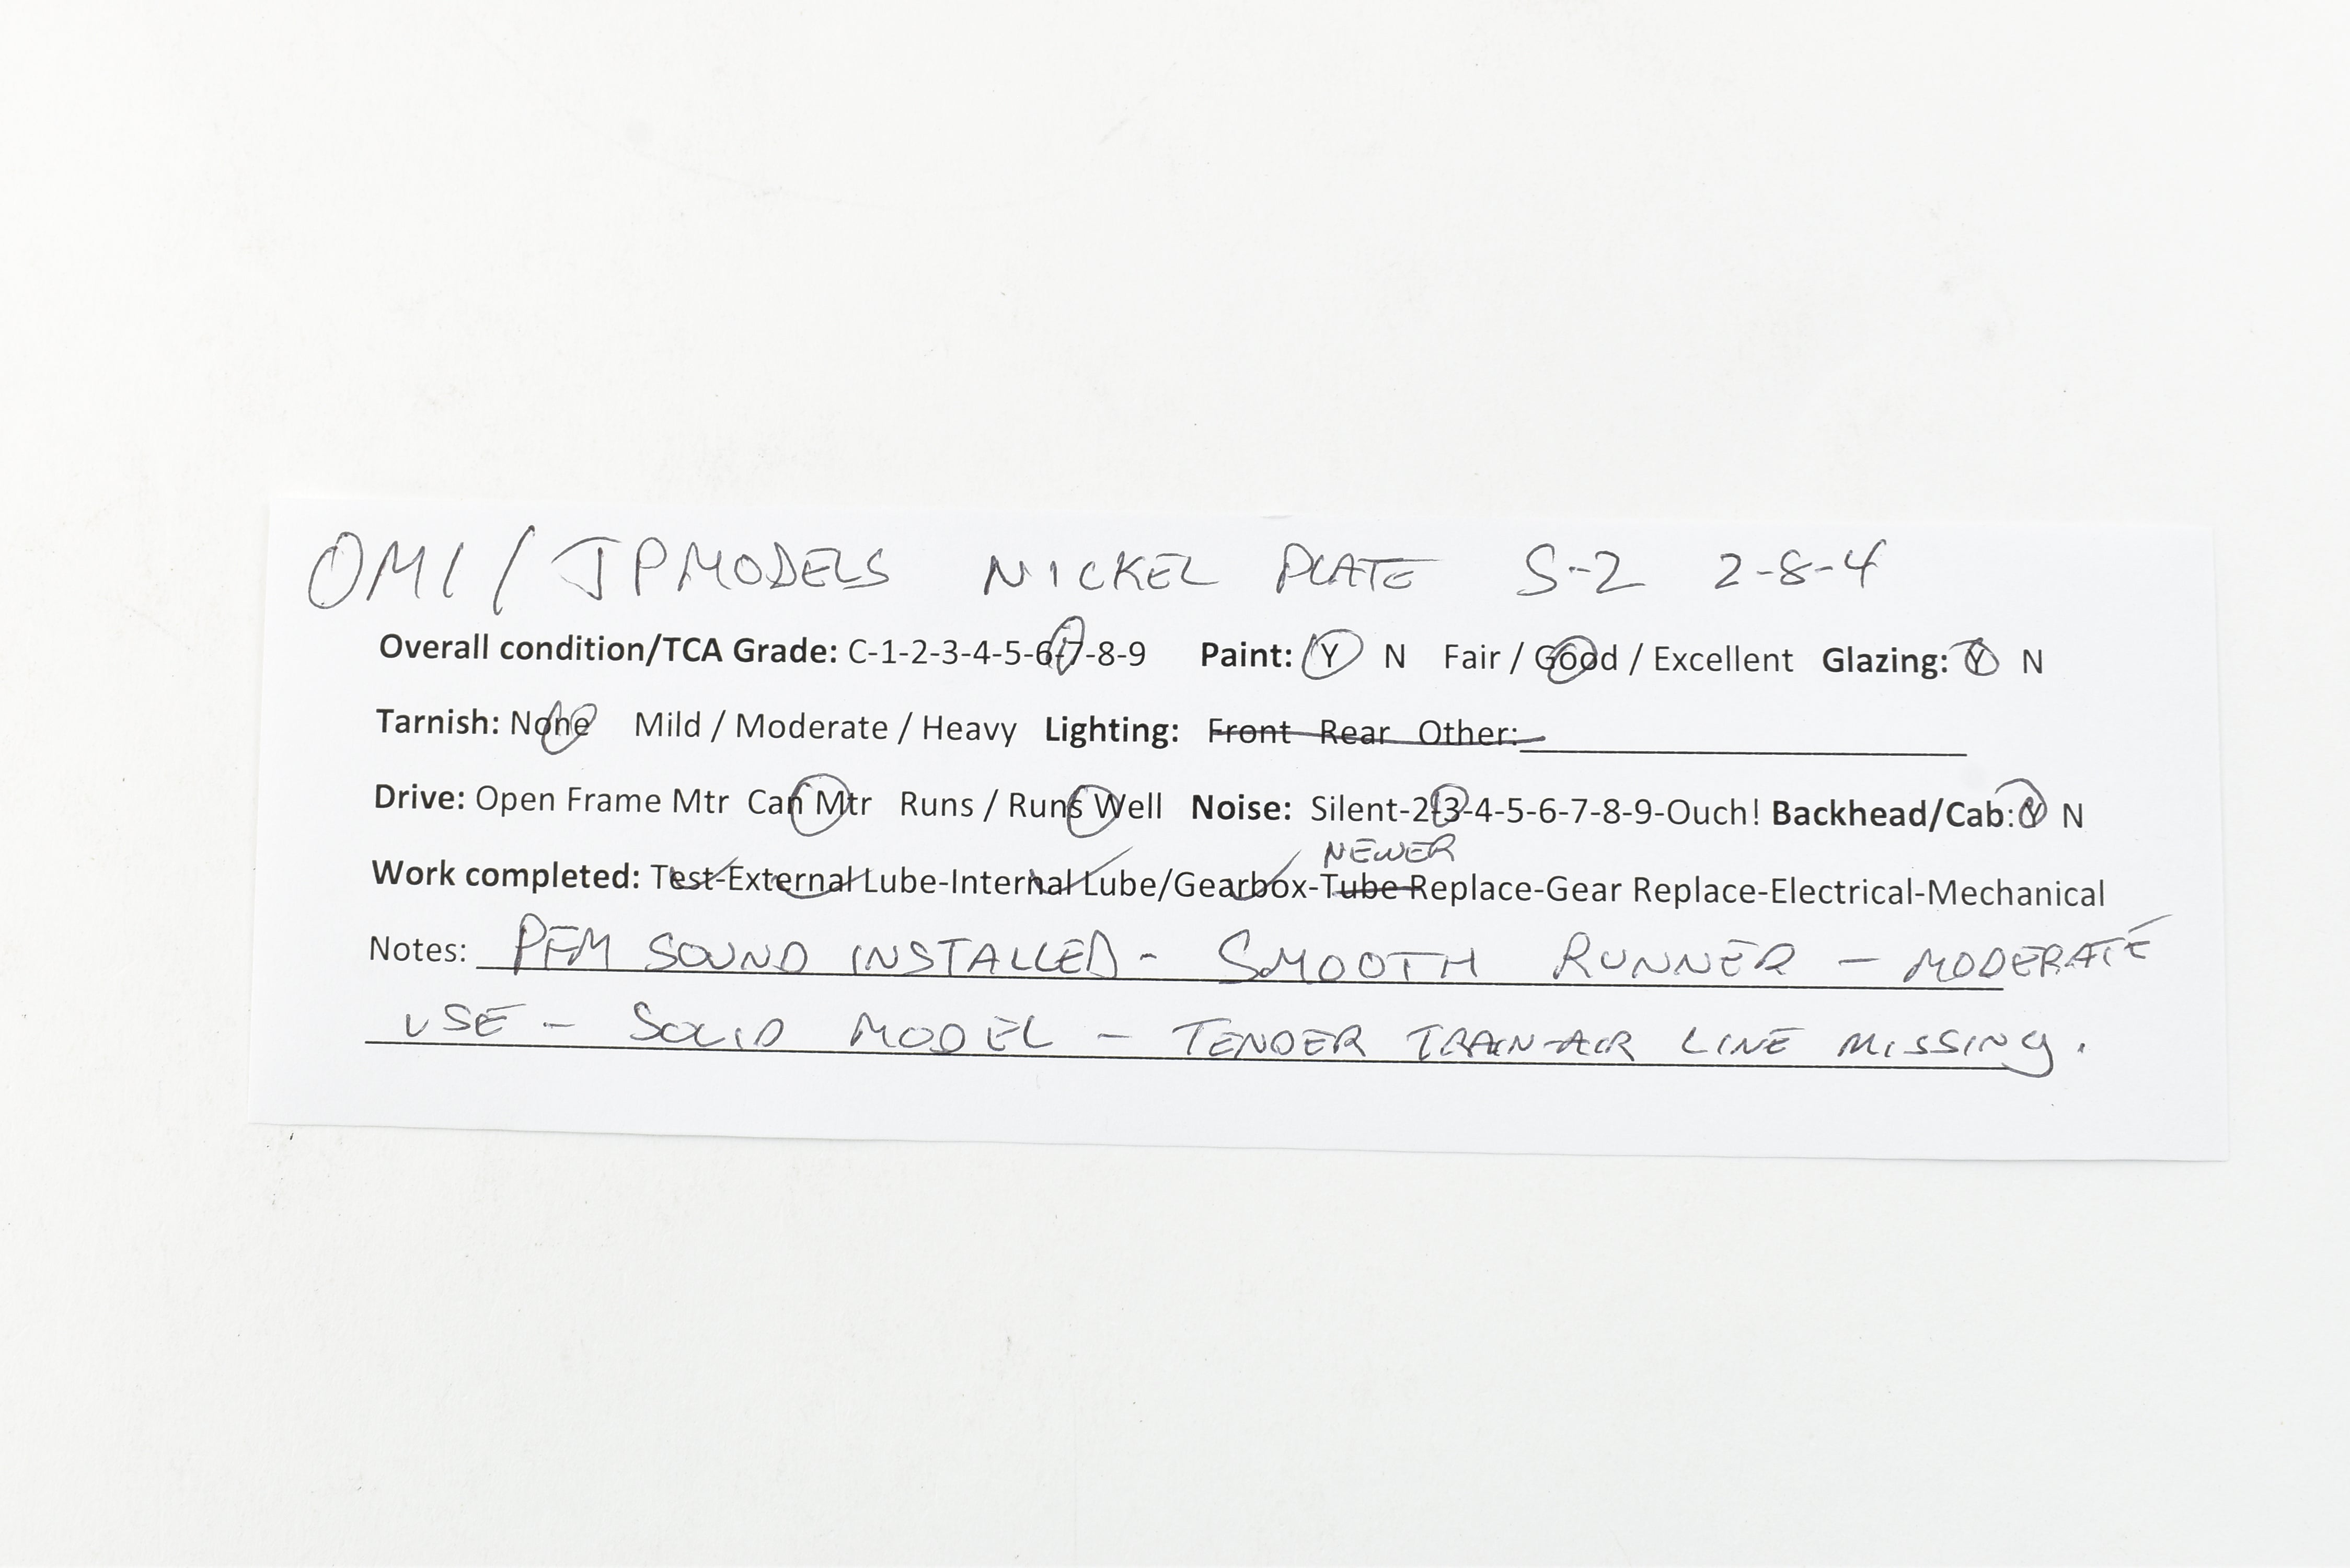 OMI / JP MODELS NICKEL PLATE S-2 2-8-4
Overall condition/TCA Grade: C-1-2-3-4-5-6-7-8-9 Paint: Y N Fair / Good / Excellent Glazing: Y N
Tarnish: None Mild / Moderate / Heavy Lighting: Front Rear Other:
Drive: Open Frame Mtr Can Mtr Runs / Runs Well Noise: Silent-2-3-4-5-6-7-8-9-Ouch! Backhead/Cab: Y N
NEWER
Work completed: Test-External Lube-Internal Lube/Gearbox-Tube Replace-Gear Replace-Electrical-Mechanical
Notes: PFM SOUND INSTALLED - SMOOTH RUNNER - MODERATE
USE - SOLID MODEL - TENDER TRAIN-AIR LINE MISSING.